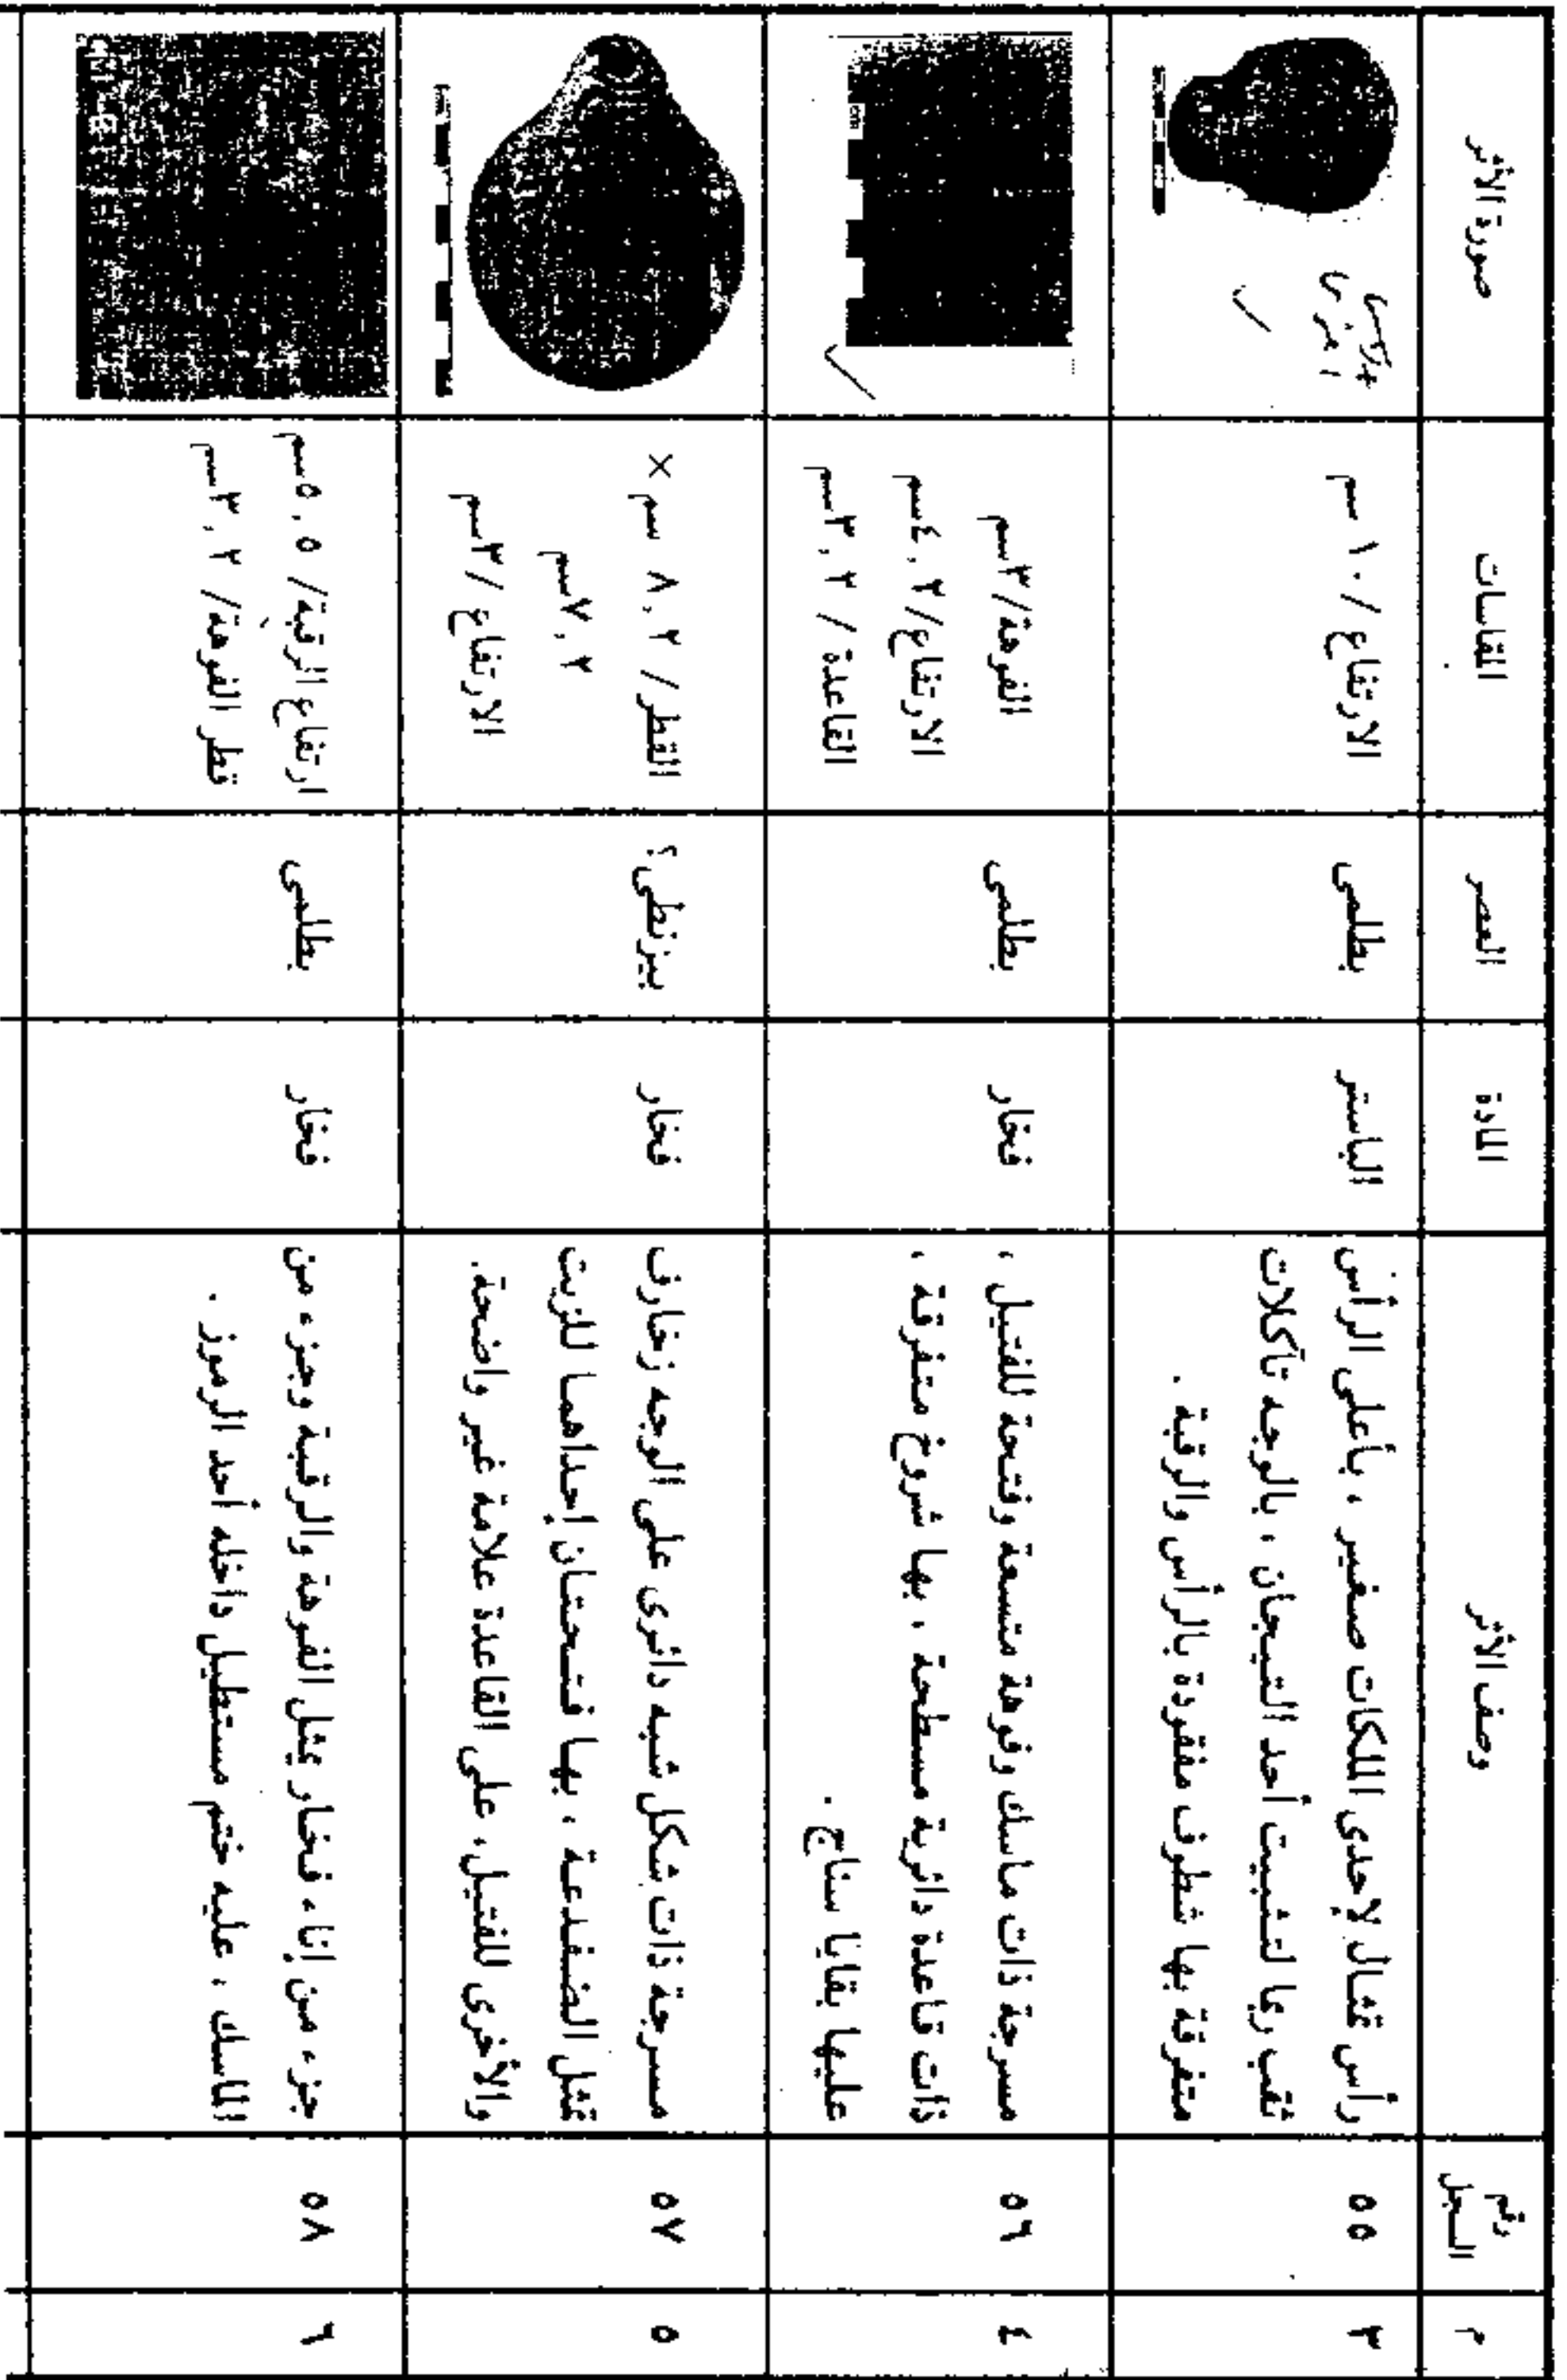 م
رقم
السجل
وصف الأثر
المادة
العصر
المقاسات
صورة الأثر
٣
٥٥
رأس تمثال لإحدى الملكات صغير ، بأعلى الرأس
ثقب ربما لتثبيت أحد التيجان ، بالوجه تآكلات
متفرقة بها شطوف مفقودة بالرأس والرقبة .
الباستر
بطلمى
الارتفاع / ١٠ سم
٤
٥٦
مسرجة ذات ماسك وفوهة متسعة وفتحة للفتيل ،
ذات قاعدة دائرية مسطحة ، بها شروخ متفرقة ،
عليها بقايا سناج .
فخار
بطلمى
الفوهة/ ٣سم
الارتفاع/ ٤,٢سم
القاعدة / ٣,٢سم
cm
٥
٥٧
مسرجة ذات شكل شبه دائرى على الوجه زخارف
تمثل الضفدعة ، بها فتحتان إحداهما للزيت
والأخرى للفتيل، على القاعدة علامة غير واضحة.
فخار
بيزنطى؟
القطر/ ٨,٢ سم ×
٧,٢سم
الارتفاع /٣سم
٦
٥٨
جزء من إناء فخار يمثل الفوهة والرقبة وجزء من
الماسك ، عليه ختم مستطيل داخله أحد الرموز .
فخار
بطلمى
ارتفاع الرقبة/ ٥,٥سم
قطر الفوهة/ ٣,٢سم